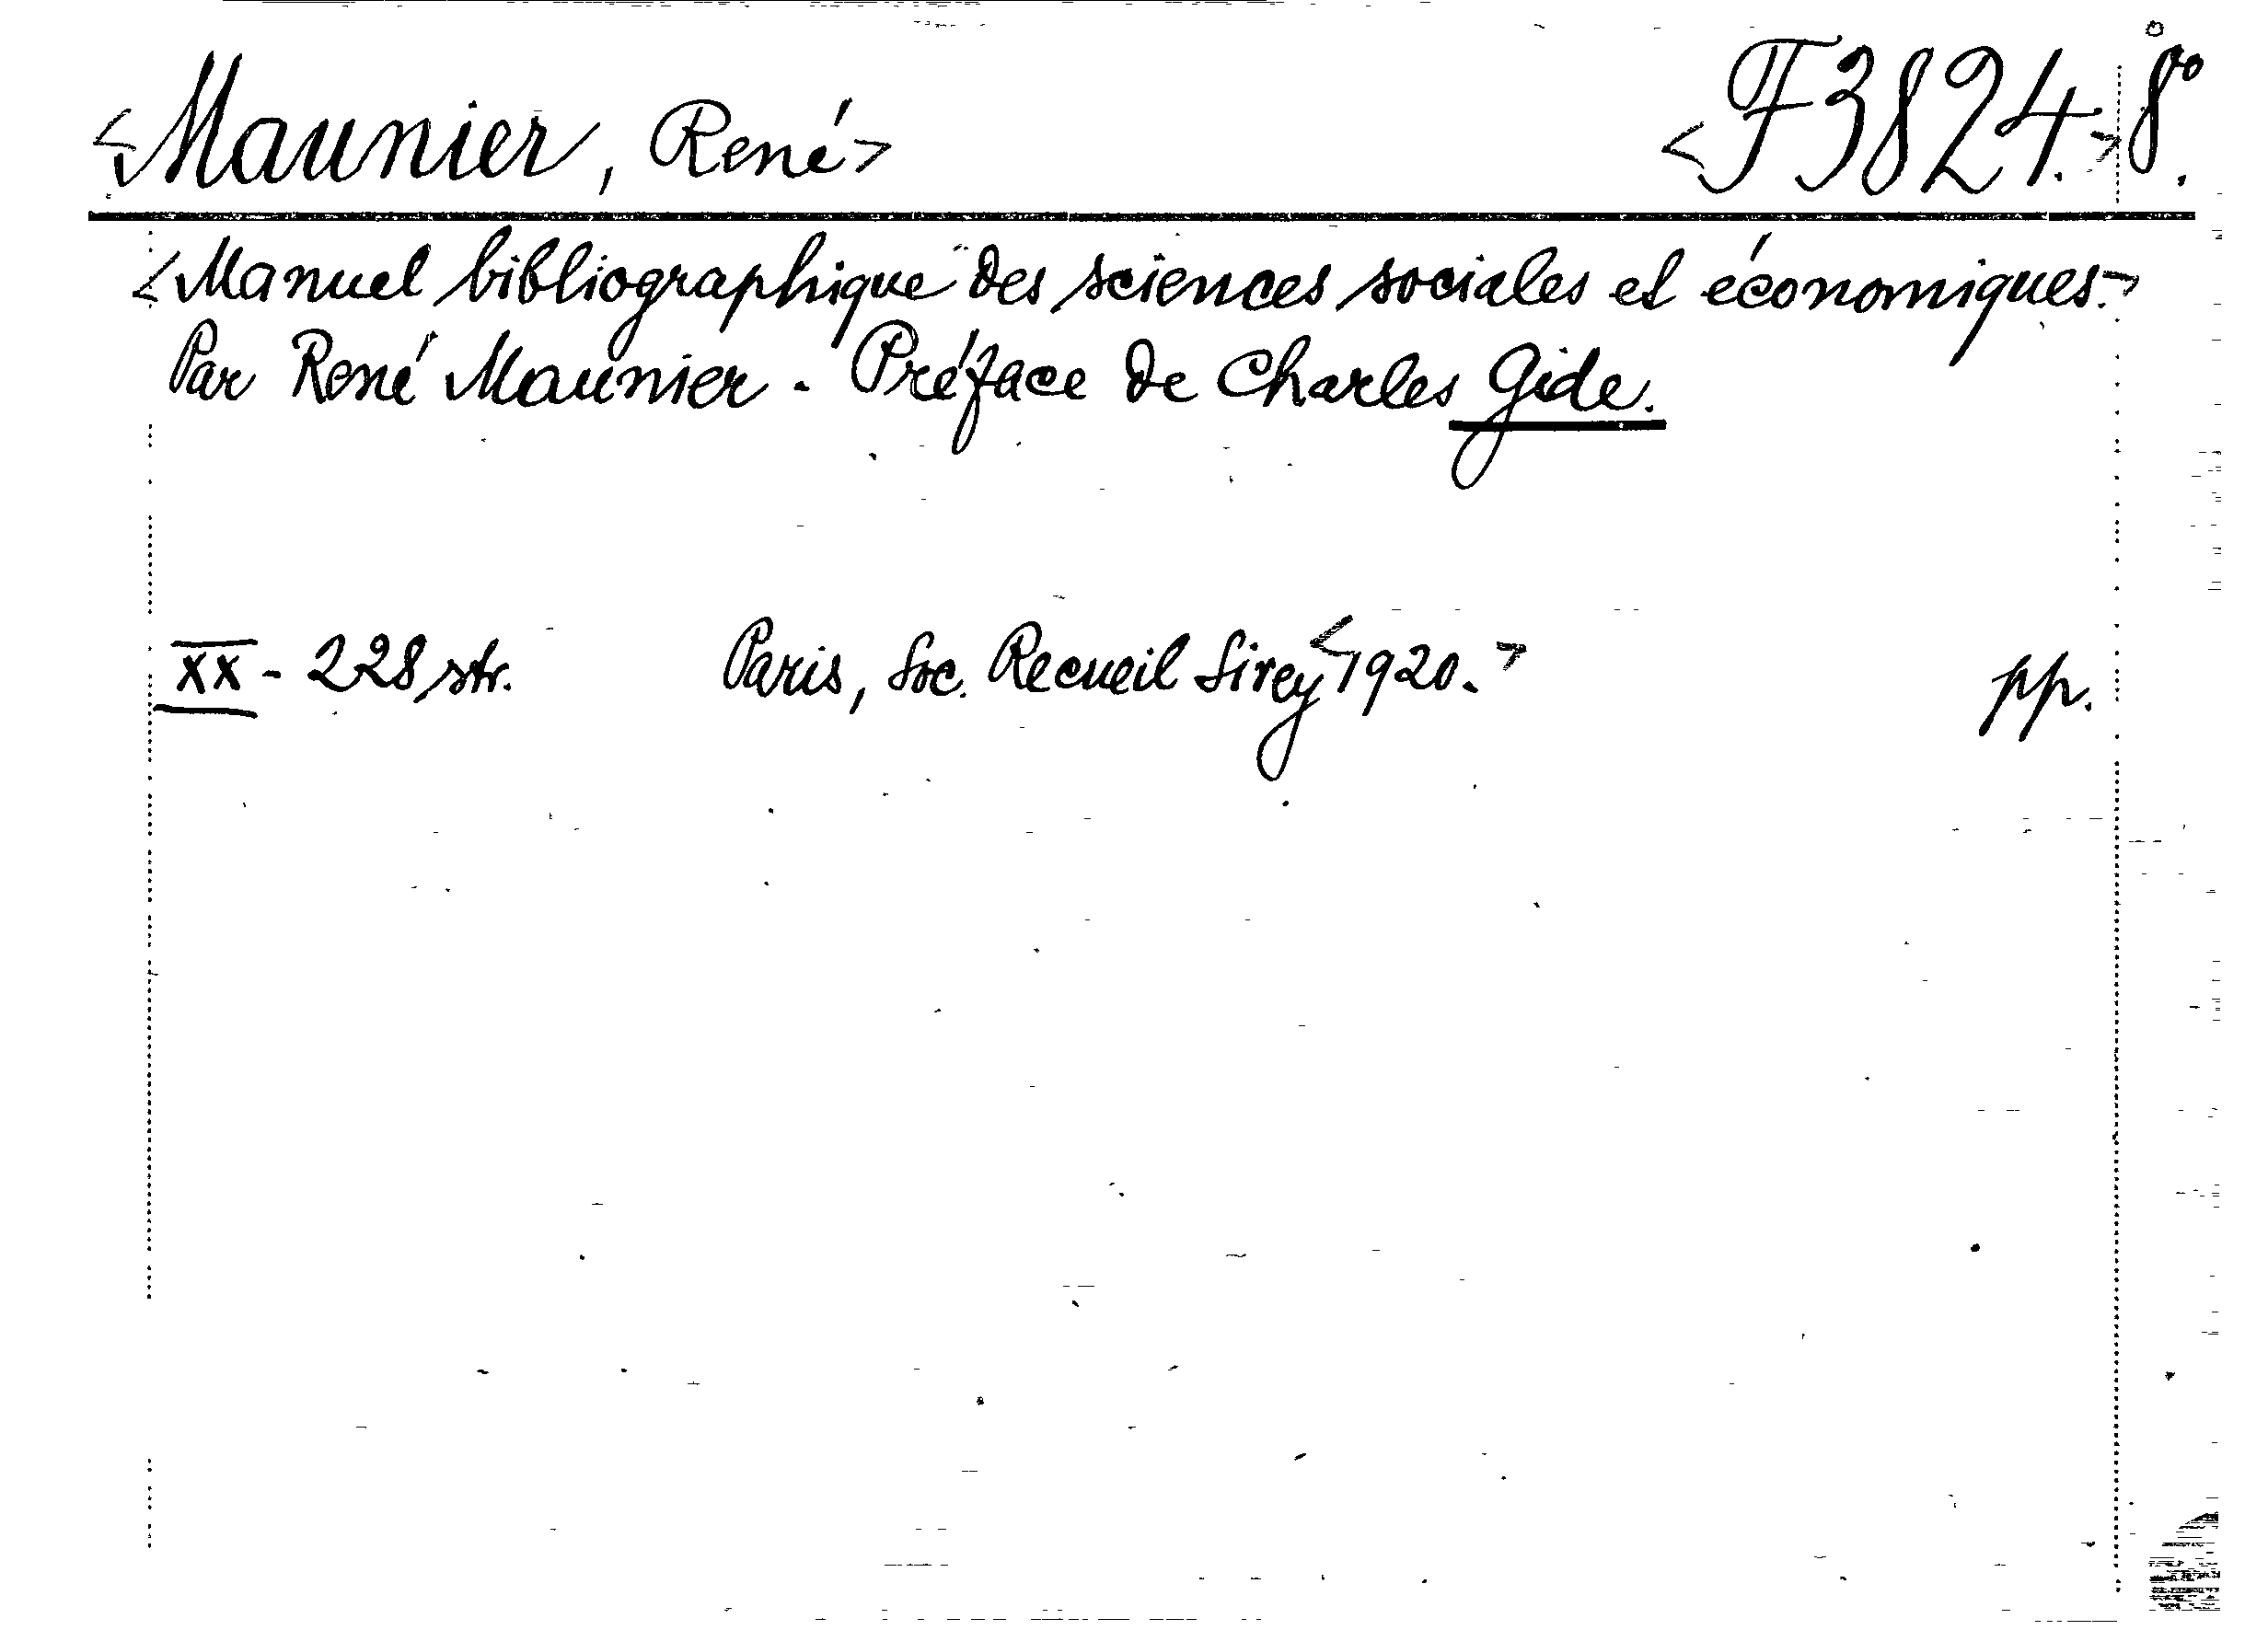 <Maunier, René> <F3824.> 8°.
<Manuel bibliographique des sciences sociales et économiques.>
Par René Maunier. Préface de Charles Gide.
XX - 228 str. Paris, Soc. Recueil Sirey <1920.> pp.